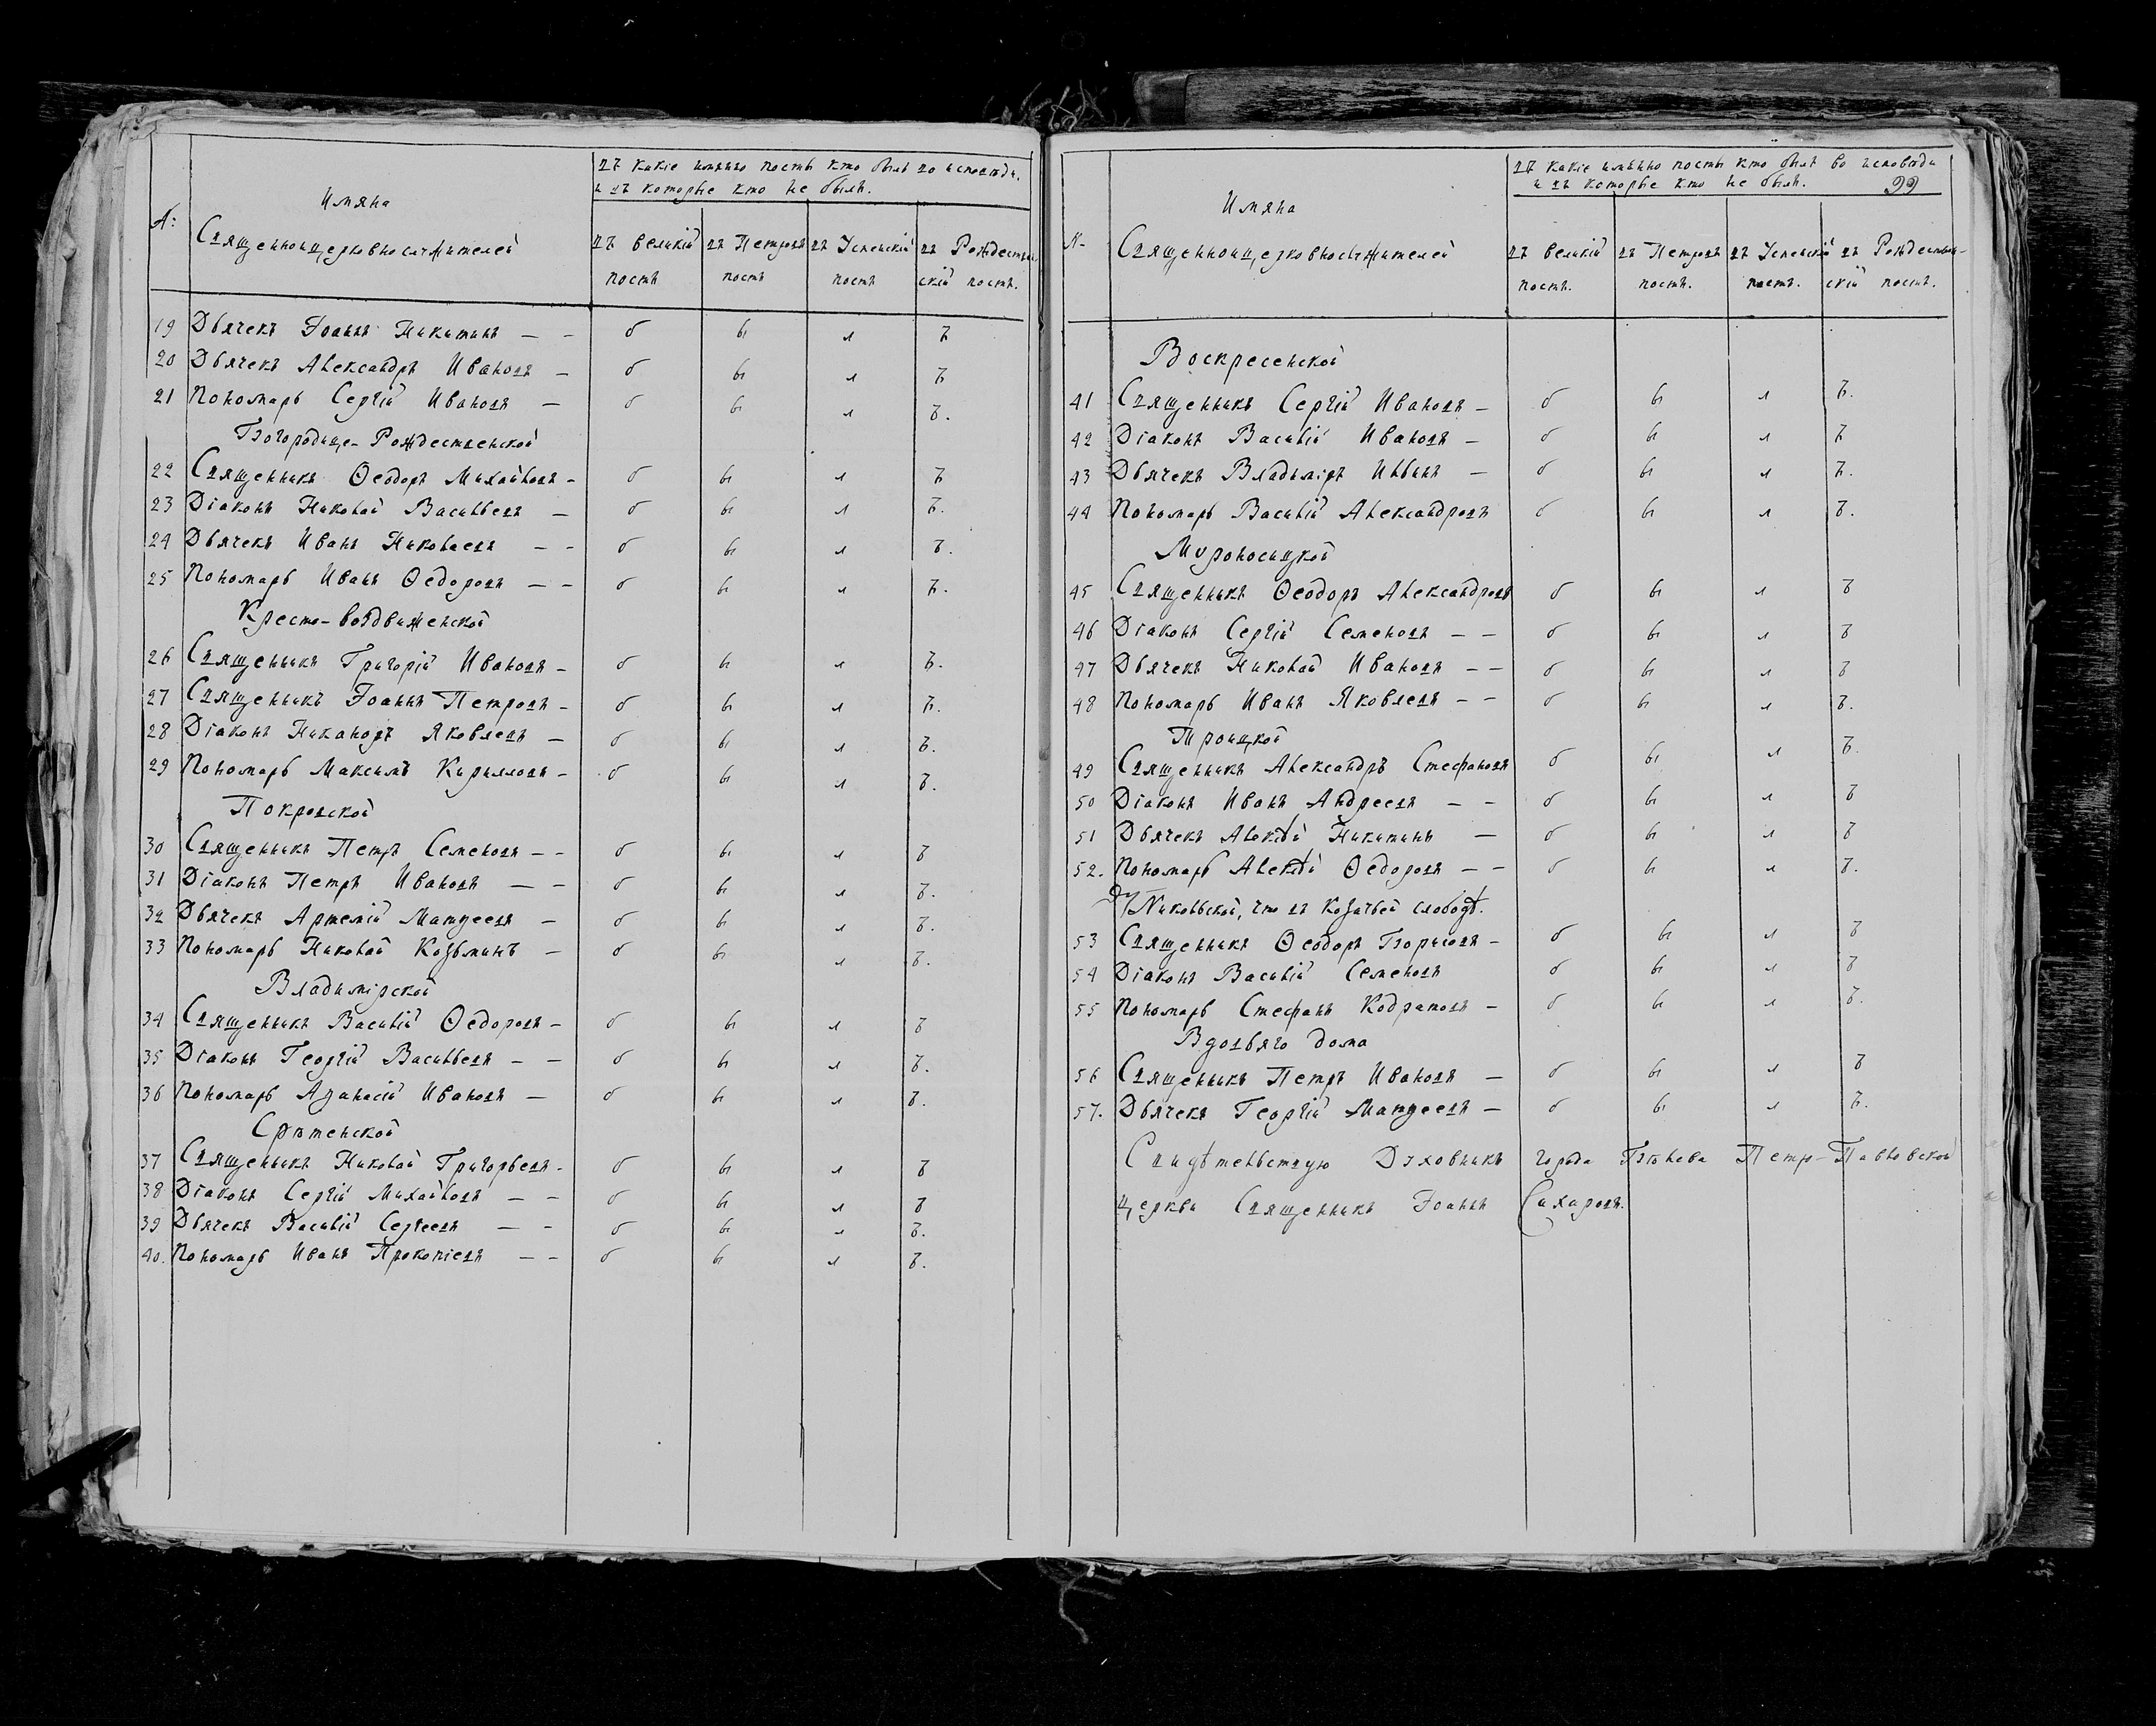 въ какіе имянно посты кто былъ во исповѣди,
и въ которые кто не былъ.
№:
Имяна
Священноицерковнослужителей
въ великій постъ
въ Петровъ постъ
въ Успенскій постъ
въ Рождественскій постъ.
19 Дьячекъ Іоаннъ Никитинъ — — б ы л ъ
20 Дьячекъ Александръ Ивановъ — б ы л ъ
21 Пономарь Сергій Ивановъ — б ы л ъ.
Богородице-Рождественской
22 Священникъ Ѳеодоръ Михайловъ - б ы л ъ
23 Діаконъ Николай Васильевъ — б ы л ъ.
24 Дьячекъ Иванъ Николаевъ — - б ы л ъ.
25 Пономарь Иванъ Ѳедоровъ — - б ы л ъ.
Кресто-воздвиженской
26 Священникъ Григорій Ивановъ - б ы л ъ.
27 Священникъ Іоаннъ Петровъ - б ы л ъ.
28 Діаконъ Никаноръ Яковлевъ — б ы л ъ.
29 Пономарь Максимъ Кирилловъ - б ы л ъ.
Покровской
30 Священникъ Петръ Семеновъ — - б ы л ъ
31 Діаконъ Петръ Ивановъ — — б ы л ъ.
32 Дьячекъ Артемій Матвеевъ — б ы л ъ.
33 Пономарь Николай Козьминъ — б ы л ъ.
Владимірской
34 Священникъ Василій Ѳедоровъ - б ы л ъ
35 Діаконъ Георгій Васильевъ — — б ы л ъ.
36 Пономарь Аѳанасій Ивановъ — б ы л ъ.
Срѣтенской
37 Священникъ Николай Григорьевъ - б ы л ъ
38 Діаконъ Сергій Михайловъ — — б ы л ъ
39 Дьячекъ Василій Сергеевъ — - б ы л ъ.
40. Пономарь Иванъ Прокопіевъ — — б ы л ъ.
въ какіе имянно посты кто былъ во исповѣди
и въ которые кто не былъ. 99
№
Имяна
Священноицерковнослужителей
въ великій постъ.
въ Петровъ постъ.
въ Успенскій постъ.
въ Рождественскій постъ.
Воскресенской
41 Священникъ Сергій Ивановъ — б ы л ъ.
42 Діаконъ Василій Ивановъ — б ы л ъ
43 Дьячекъ Владиміръ Ильинъ — б ы л ъ.
44 Пономарь Василій Александровъ б ы л ъ.
Мѵроносицкой
45 Священникъ Ѳеодоръ Александровъ б ы л ъ
46 Діаконъ Сергій Семеновъ — — б ы л ъ
47 Дьячекъ Николай Ивановъ — — б ы л ъ
48 Пономарь Иванъ Яковлевъ — - б ы л ъ.
Троицкой
49 Священникъ Александръ Стефановъ б ы л ъ.
50 Діаконъ Иванъ Андреевъ — - б ы л ъ
51 Дьячекъ Алексѣй Никитинъ — б ы л ъ
52. Пономарь Алексѣй Ѳедоровъ — — б ы л ъ.
Николской, что въ Козачьей слободѣ.
53 Священникъ Ѳеодоръ Борисовъ - б ы л ъ
54 Діаконъ Василій Семеновъ б ы л ъ
55 Пономарь Стефанъ Кодратовъ - б ы л ъ.
Вдовьяго дома
56 Священникъ Петръ Ивановъ — б ы л ъ
57. Дьячекъ Георгій Матвеевъ — б ы л ъ.
Свидѣтельствую Духовникъ города Бѣлева Петро-Павловской
церкви Священникъ Іоаннъ Сахаровъ.